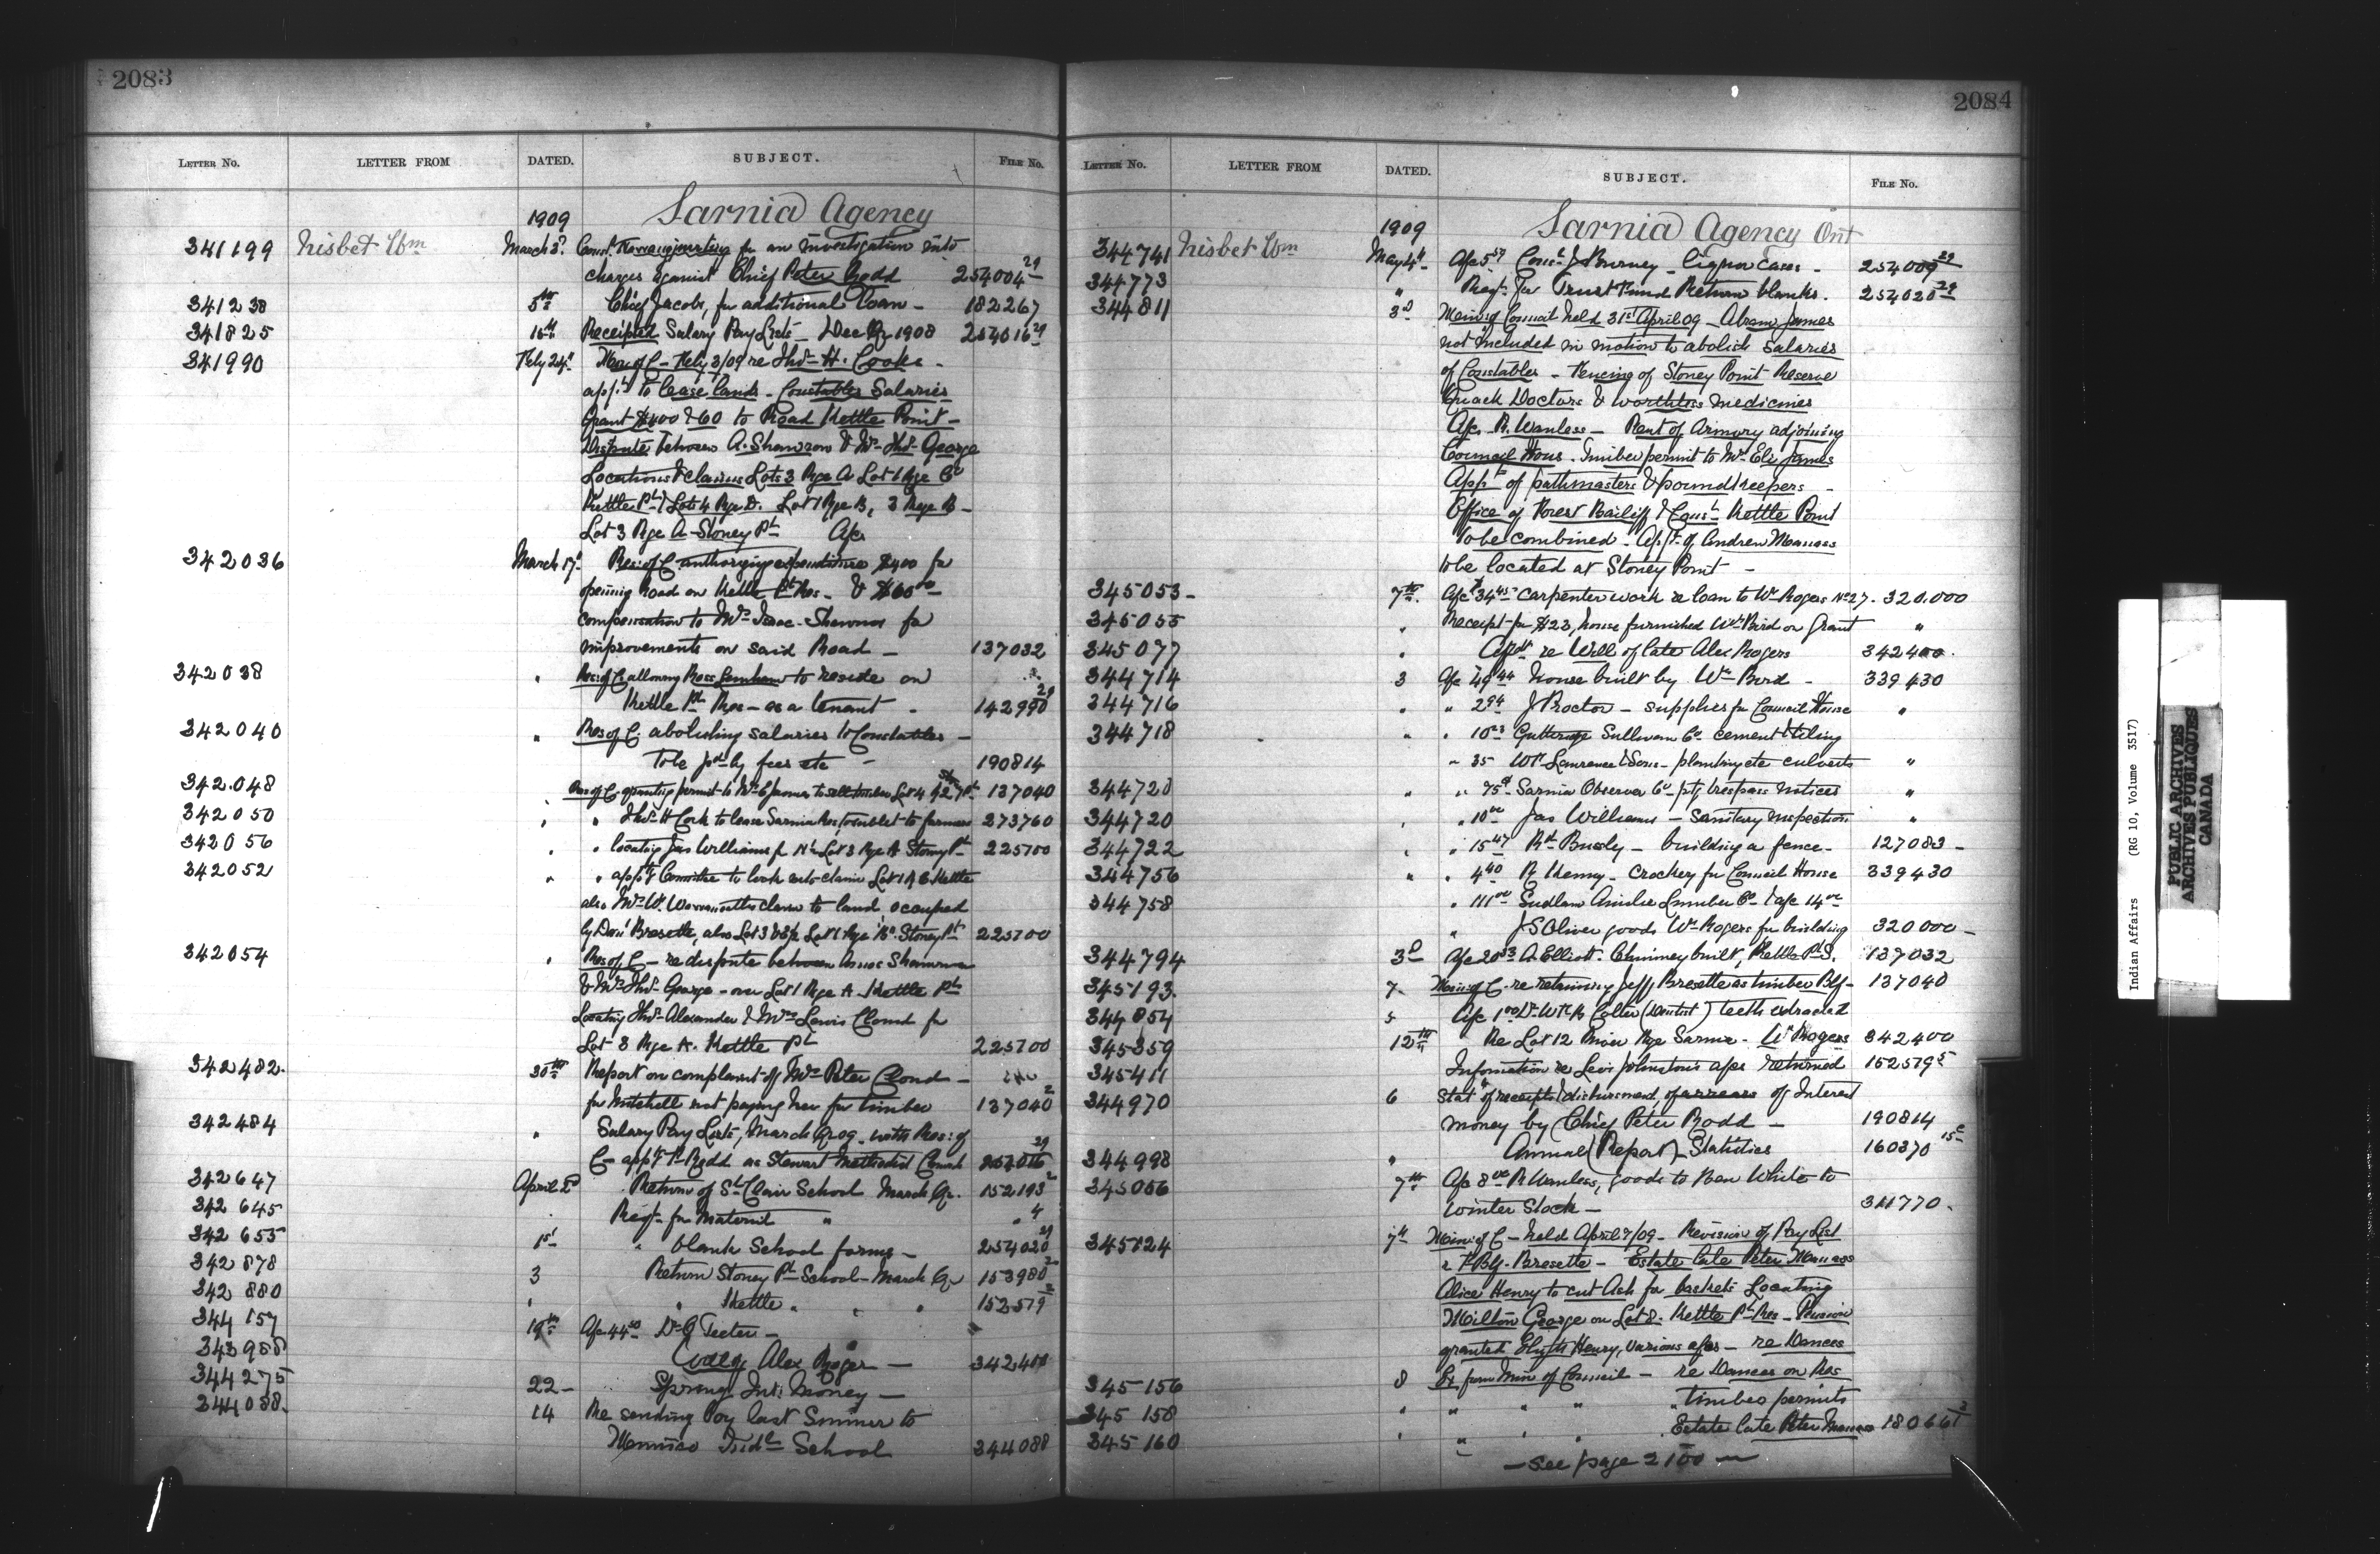 2083
LETTER NO. LETTER FROM DATED. SUBJECT. FILE NO.
1909 Sarnia Agency
341199 Nisbet Wm March 3d for an investigation into
charges against Chief Peter Rodd 254004 29
341238 5th Chief Jacobs, for additional loan - 182267
341825 15th Receipted Salary Pay Lists - Dec Qr 1908 254016 29
341990 Feby 24th Min of C - Feby 3/09 re Thos H. Cooks -
app'n to lease lands - Constables Salaries
Grant $400 & 60 to Road Kettle Point -
Dispute between A. Shawnoo & Mrs Thos George
Locations & claims Lots 3 Rge A Lot 1 Rge C
Kettle Pt) Lots 4 Rge D. Lot 1 Rge B, 3 Rge B -
Lot 3 Rge A - Stoney Pt
342036 March 17th Res: of C. authorizing expenditure $400 for
opening Road on Kettle Pt Res - & $60 00
compensation to Mrs Isaac Shawnoo for
improvements on said Road - 137032
342038 " Res: of C allowing Ross to reside on
Kettle Pt Res - as a tenant - 142990 29
342040 " Res of C. abolishing salaries to Constables -
To be pd by fees etc - 190814
342.048 " Res of C. granting permit to Mrs E James to sell timber Lot 4 137040
342050 " " Thos H Cook to lease Sarnia Res, to sublet to farmers 273760
342056 " " locating Jas Williams for N½ Lot 3 Rge A Stoney Pt 225700
342052 " " app't Committee to look into claim Lot 1 A C Kettle
also Mrs W. claim to land occupied
by Bresette, also Lot 3 Lot 1 Rge "B" Stoney Pt 225700
342054 " Res of C - re dispute between Amos Shawnoo
& Mrs Thos George - over Lot 1 Rge A - Kettle Pt
Locating Thos Alexander & Mrs Lewis Cloud for
Lot 8 Rge A. Kettle Pt 225700
342482. 30th Report on complaint of Mrs Peter Cloud -
for Mitchell not paying her for timber 137040 2
342484 " Salary Pay Lists, March Qr 09 - with Res: of
C - app't P. Rodd as Stewart Methodist Church 254016 29
342647 April 2d Return of St Clair School March Qr. 152193 2
342645 " Reqn for Material " " 4
342655 1st " blank School forms - 254020 29
342878 3 Return Stoney Pt School - March Qr 153980 2
342880 " " Kettle " " " 152579 2
344157 19th Afc 44 50 Dr G Teeter -
343988 Will of Alex Roger - 342400
344275 22 - Spring Int: Money -
344088. 14 Re sending boy last Summer to
Indl School 344088
2084
LETTER NO. LETTER FROM DATED. SUBJECT. FILE NO.
1909 Sarnia Agency Ont
344741 Nisbet Wm May 4th Afc 5 57 Const J Burney - liquor cases - 254009 29
344773 " Reqn for Trust Fund Return blanks. 254020 29
344811 3d Min: of Council held 31st April 09 - Abram James
not included in motion to abolish salaries
of Constables - Fencing of Stoney Point Reserve
Quack Doctors & worthless medicines
Afc R. Wanless - Rent of Armory adjoining
Council House. Timber permit to Mrs Eli James
App't of pathmasters & poundkeepers -
Office of Forest Bailiff & Const Kettle Point
to be combined - Appt of Andrew Manass
to be located at Stoney Point -
345053 - 7th. Afc 34 45 carpenter work re loan to Wm Rogers No 27. 320.000
345055 " Receipt for $23, house furnished Wm Bird on grant "
345077 " Affdt re Will of late Alex Rogers 342400.
344714 3 Afc 49 44 house built by Wm Bird - 339430
344716 " " 2 94 J Proctor - supplies for Council House "
344718 " " 10 23 Sullivan Co cement & tiling
" 35 Wm Lawrence & Sons - planking etc culverts "
344728 " " 75c Sarnia Observer Co - ptg trespass notices "
344720 " " 10 00 Jas Williams - Sanitary inspection "
344722 " " 15 47 Rt - building a fence - 127083 -
344756 " " 4 40 R Kenny - crockery for Council House 339430
344758 " 111 00 Sudlam Ainslie Lumber Co & afc 14 00
" J S Oliver goods Wm Rogers for building 320000 -
344794 3d Afc 20 53 A. Elliott. Chimney built, Kettle Pt S. 137032
345193. 7 Min: of C. re retaining Jeff Bresette as timber Blf - 137040
344854 5 Afc 1 00 Dr Wm R Colter (Dentist) teeth extracted
345359 12th Re Lot 12 River Rge Sarnia - Wm Rogers 342400
345411 Information re Levi Johnston's afcs returned 152579 5
344970 6 Stat of receipts & disbursement, of arrears of Interest
money by Chief Peter Rodd - 190814
344998 " Annual (Report) Statistics 160370 15c
345056 7th Afc 8 00 R Wanless, goods to Ben White to
winter Stock - 311770.
345124 7th Min: of C - held April 7/09 - Revision of Pay List
r F. Blf - Bresette - Estate late Peter Manass
Alice Henry to cut Ash for baskets Locating
Milton George on Lot 8. Kettle Pt Res - Pension
granted Henry, various afcs - re Dances
345156 8 Ex from Min of Council - re Dances on Res
345158 " " " " " timber permits
345160 " " " " Estate late Peter Manass 180661 2
- See page 2100 -
Indian Affairs (RG 10, Volume 3517)
PUBLIC ARCHIVES
ARCHIVES PUBLIQUES
CANADA